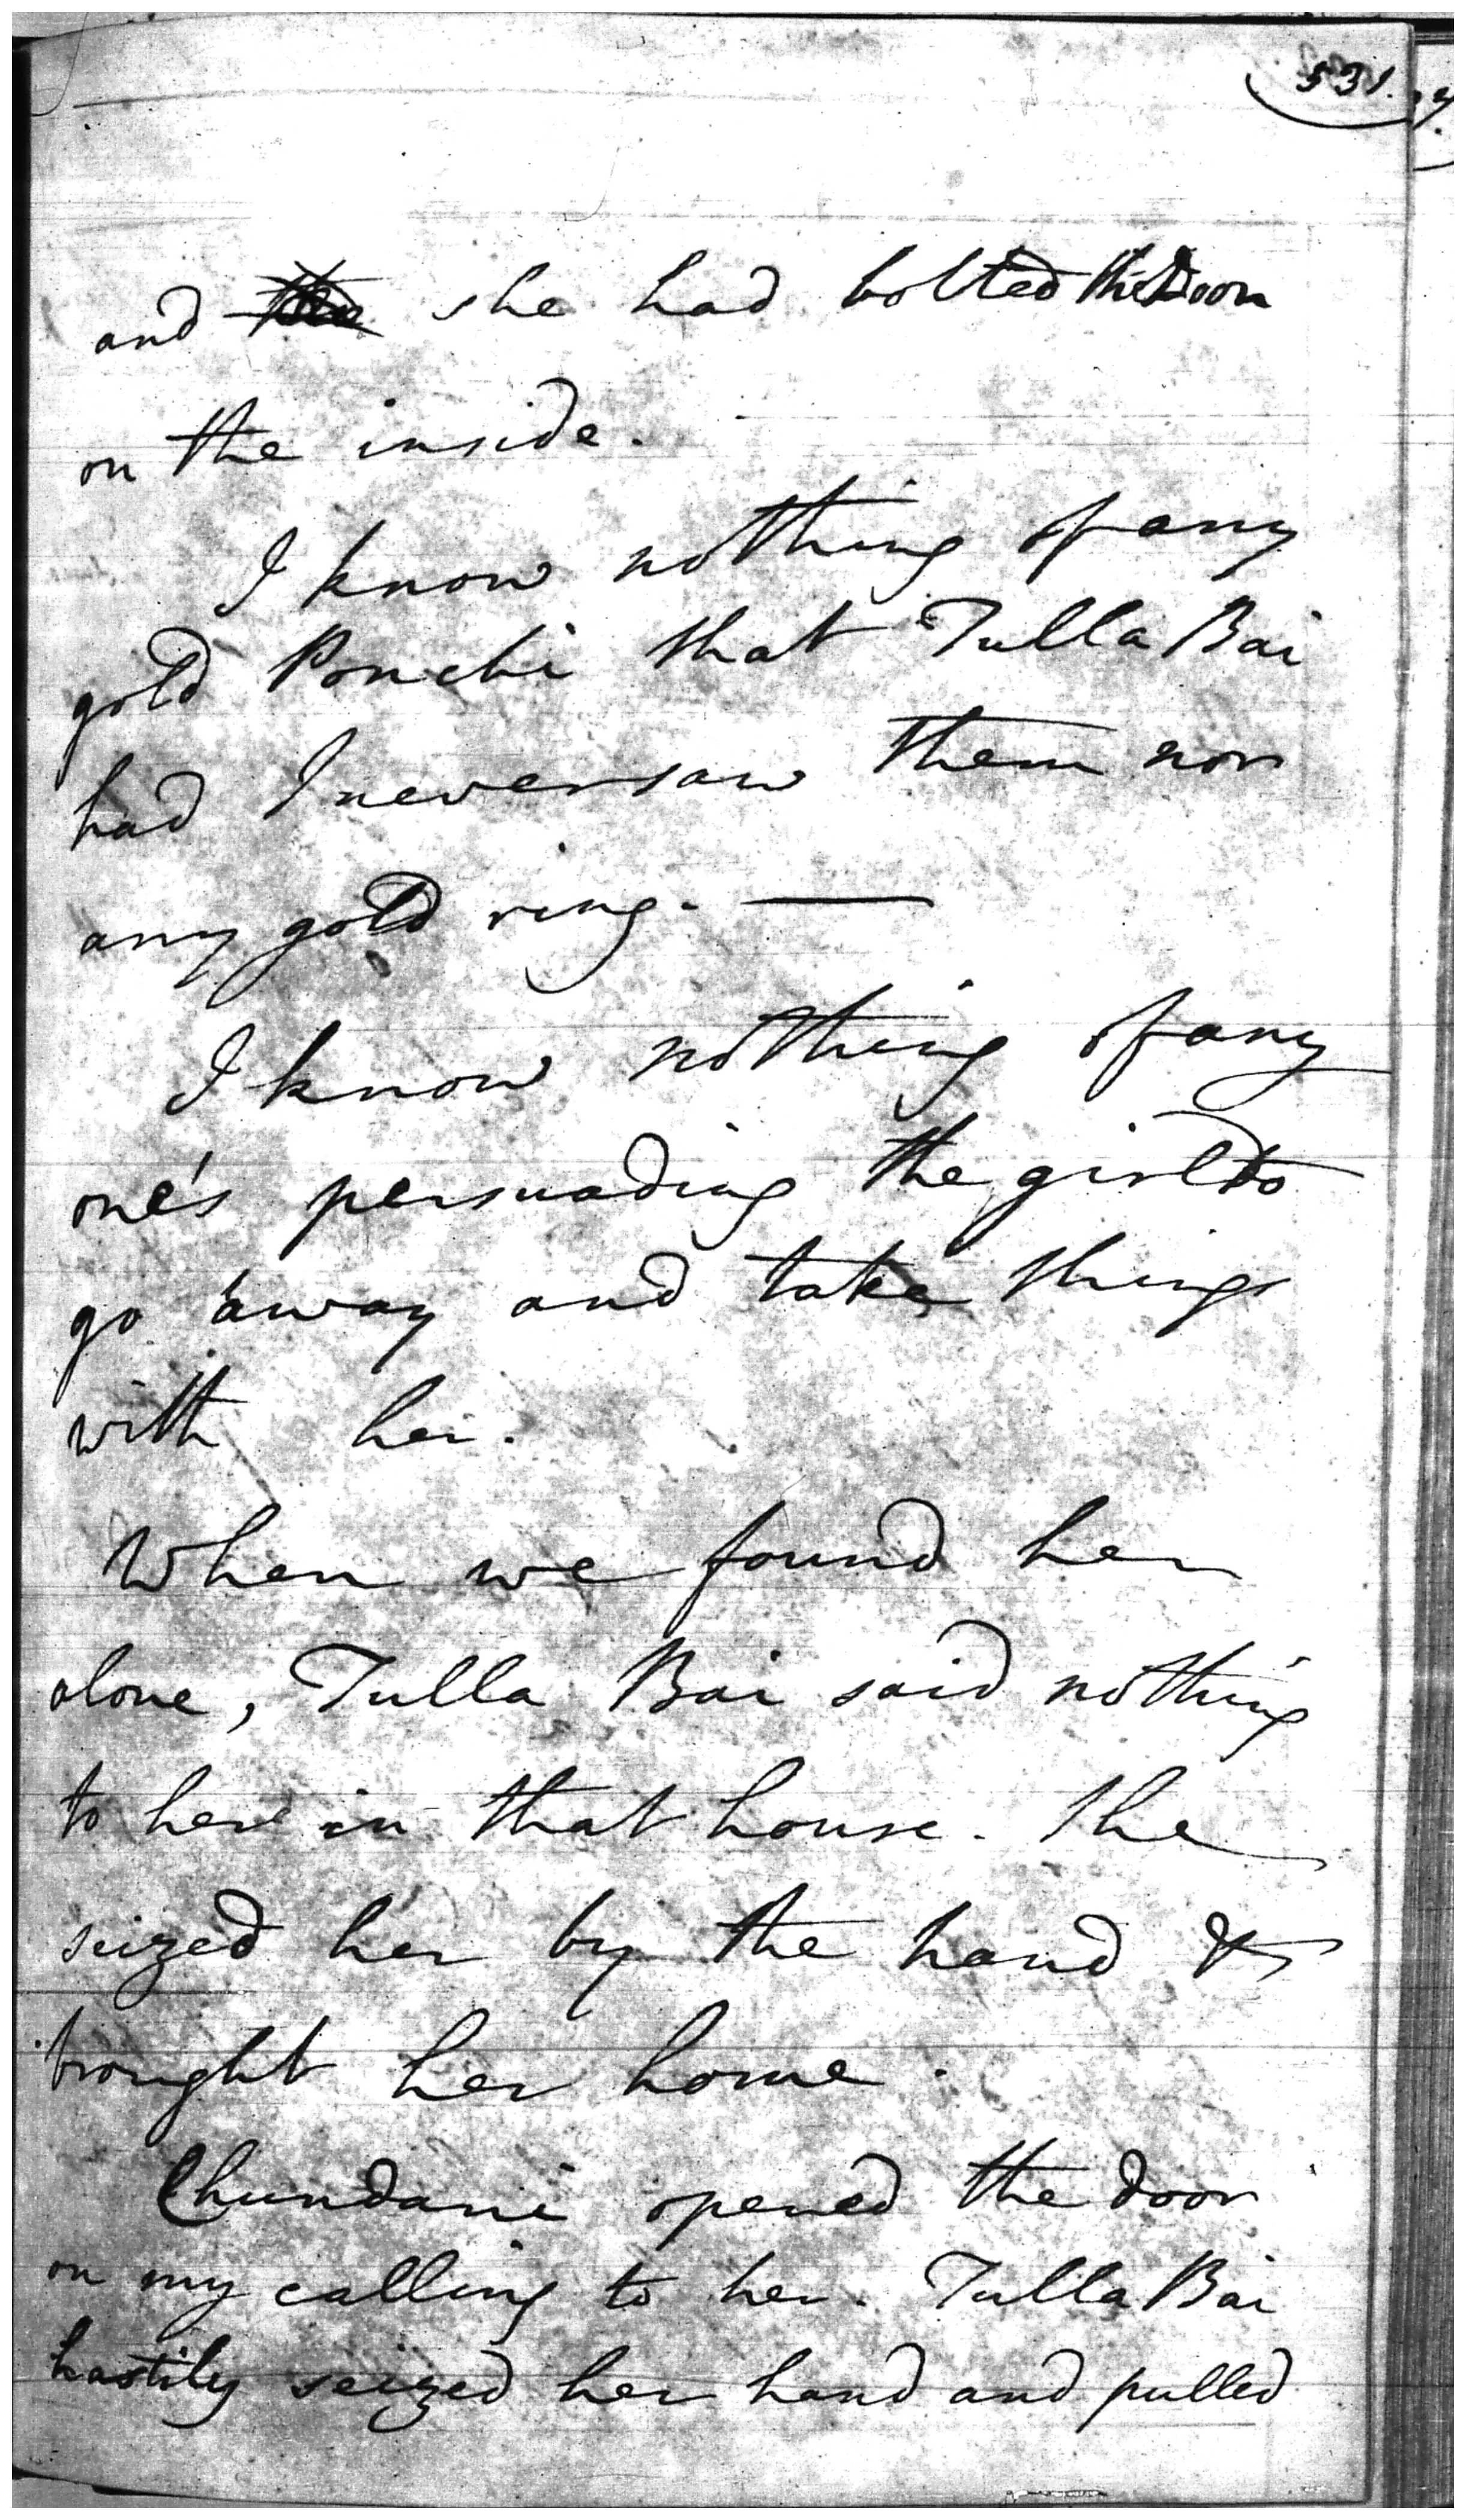 531.
and she had bolted the Door
on the inside.
I know nothing of any
gold Ponchi that Tulla Bai
had I never saw them nor
any gold ring. —
I know nothing of any
one's persuading the girl to
go away and take things
with her.
When we found her
alone, Tulla Bai said nothing
to her in that house. She
seized her by the hand &
brought her home.
Chundani opened the door
on my calling to her. Tulla Bai
hastily seized her hand and pulled